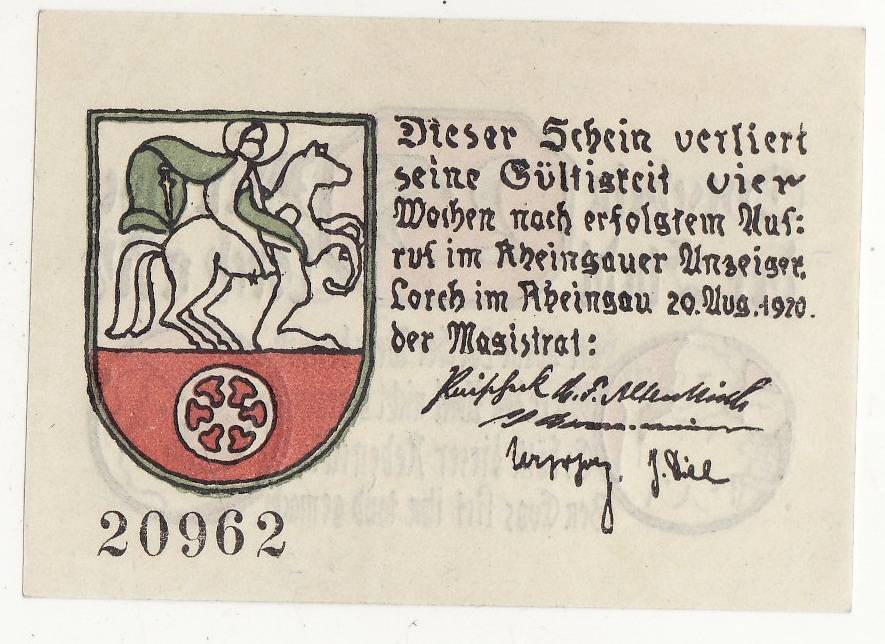 Dieser Schein verliert
seine Gültigkeit vier
Wochen nach erfolgtem Auf:
ruf im Rheingauer Anzeiger.
Lorch im Rheingau 20. Aug. 1920.
der Magistrat:
20962